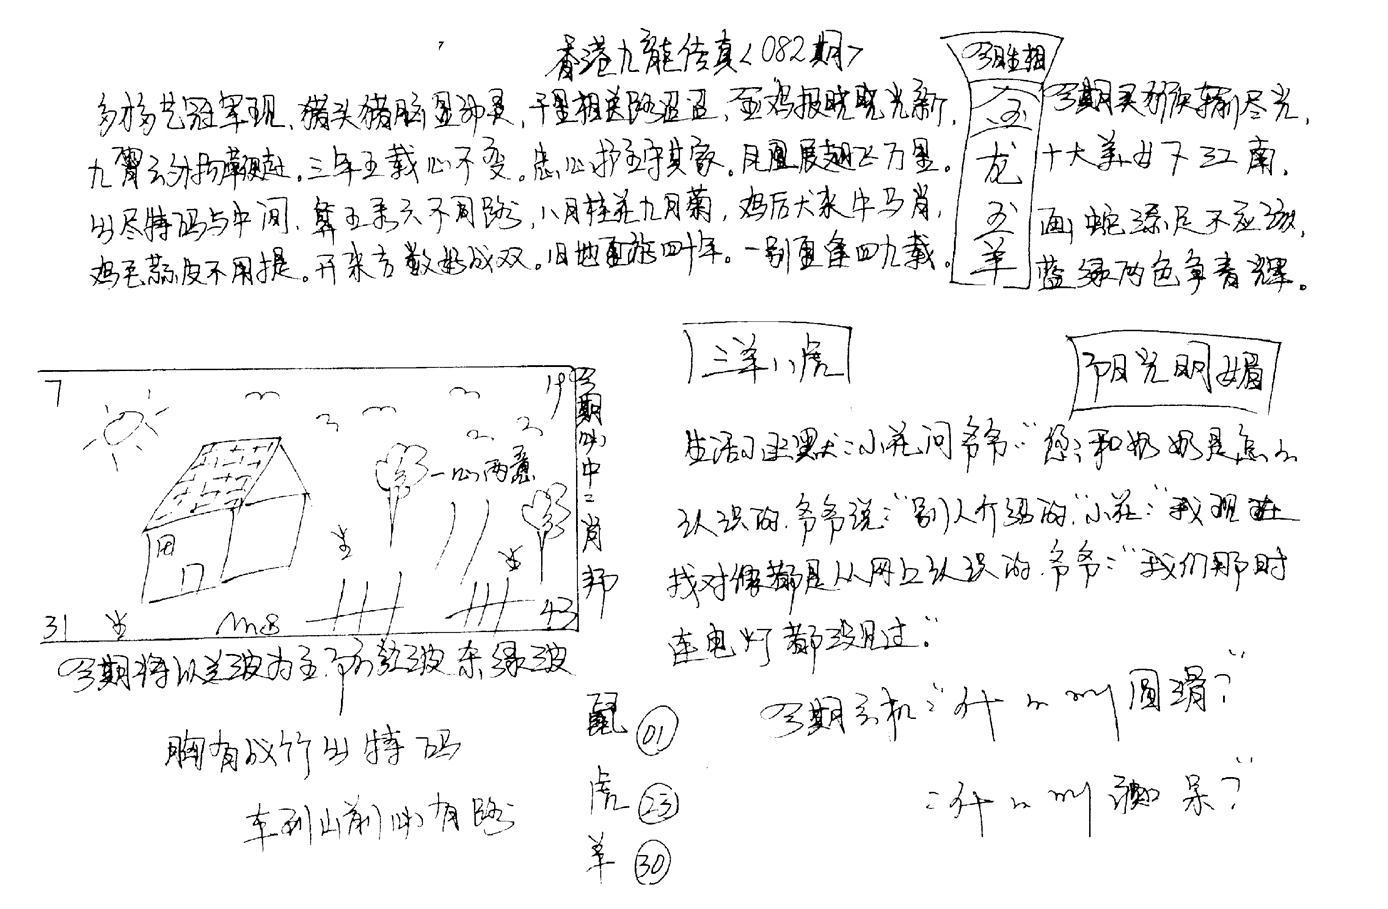 香港九龙传真<082期>
今期生相
多才多艺冠军现、猪头猪脑显神灵,千里相送路迢迢,金鸡报晓晓光新,
九霄云外扬鞭赶。三年五载心不变。忠心护主守其家。凤凰展翅飞万里。
出尽特码与中间,算五来六不同路,八月桂花九月菊,鸡后犬来牛马肖,
鸡毛蒜皮不用提。开来方数好成双。旧地重游四十年。一别重逢四九载。
龙
羊
今期买猴输尽光,
十大美女下江南,
画蛇添足不应该,
蓝绿两色争春辉。
三羊八虎
阳光明媚
7
19
一心两意
31
43
今期必中二肖邦
生活幽默:小花问爷爷:"您和奶奶是怎么
认识的.爷爷说:"别人介绍的."小花:"我现在
找对像都是从网上认识的.爷爷:"我们那时
连电灯都没见过."
今期将以兰波为主.防红波杂绿波
胸有成竹出特码
车到山前必有路
鼠 01
虎 23
羊 30
今期玄机:"什么叫圆滑?"
:"什么叫 呆?"